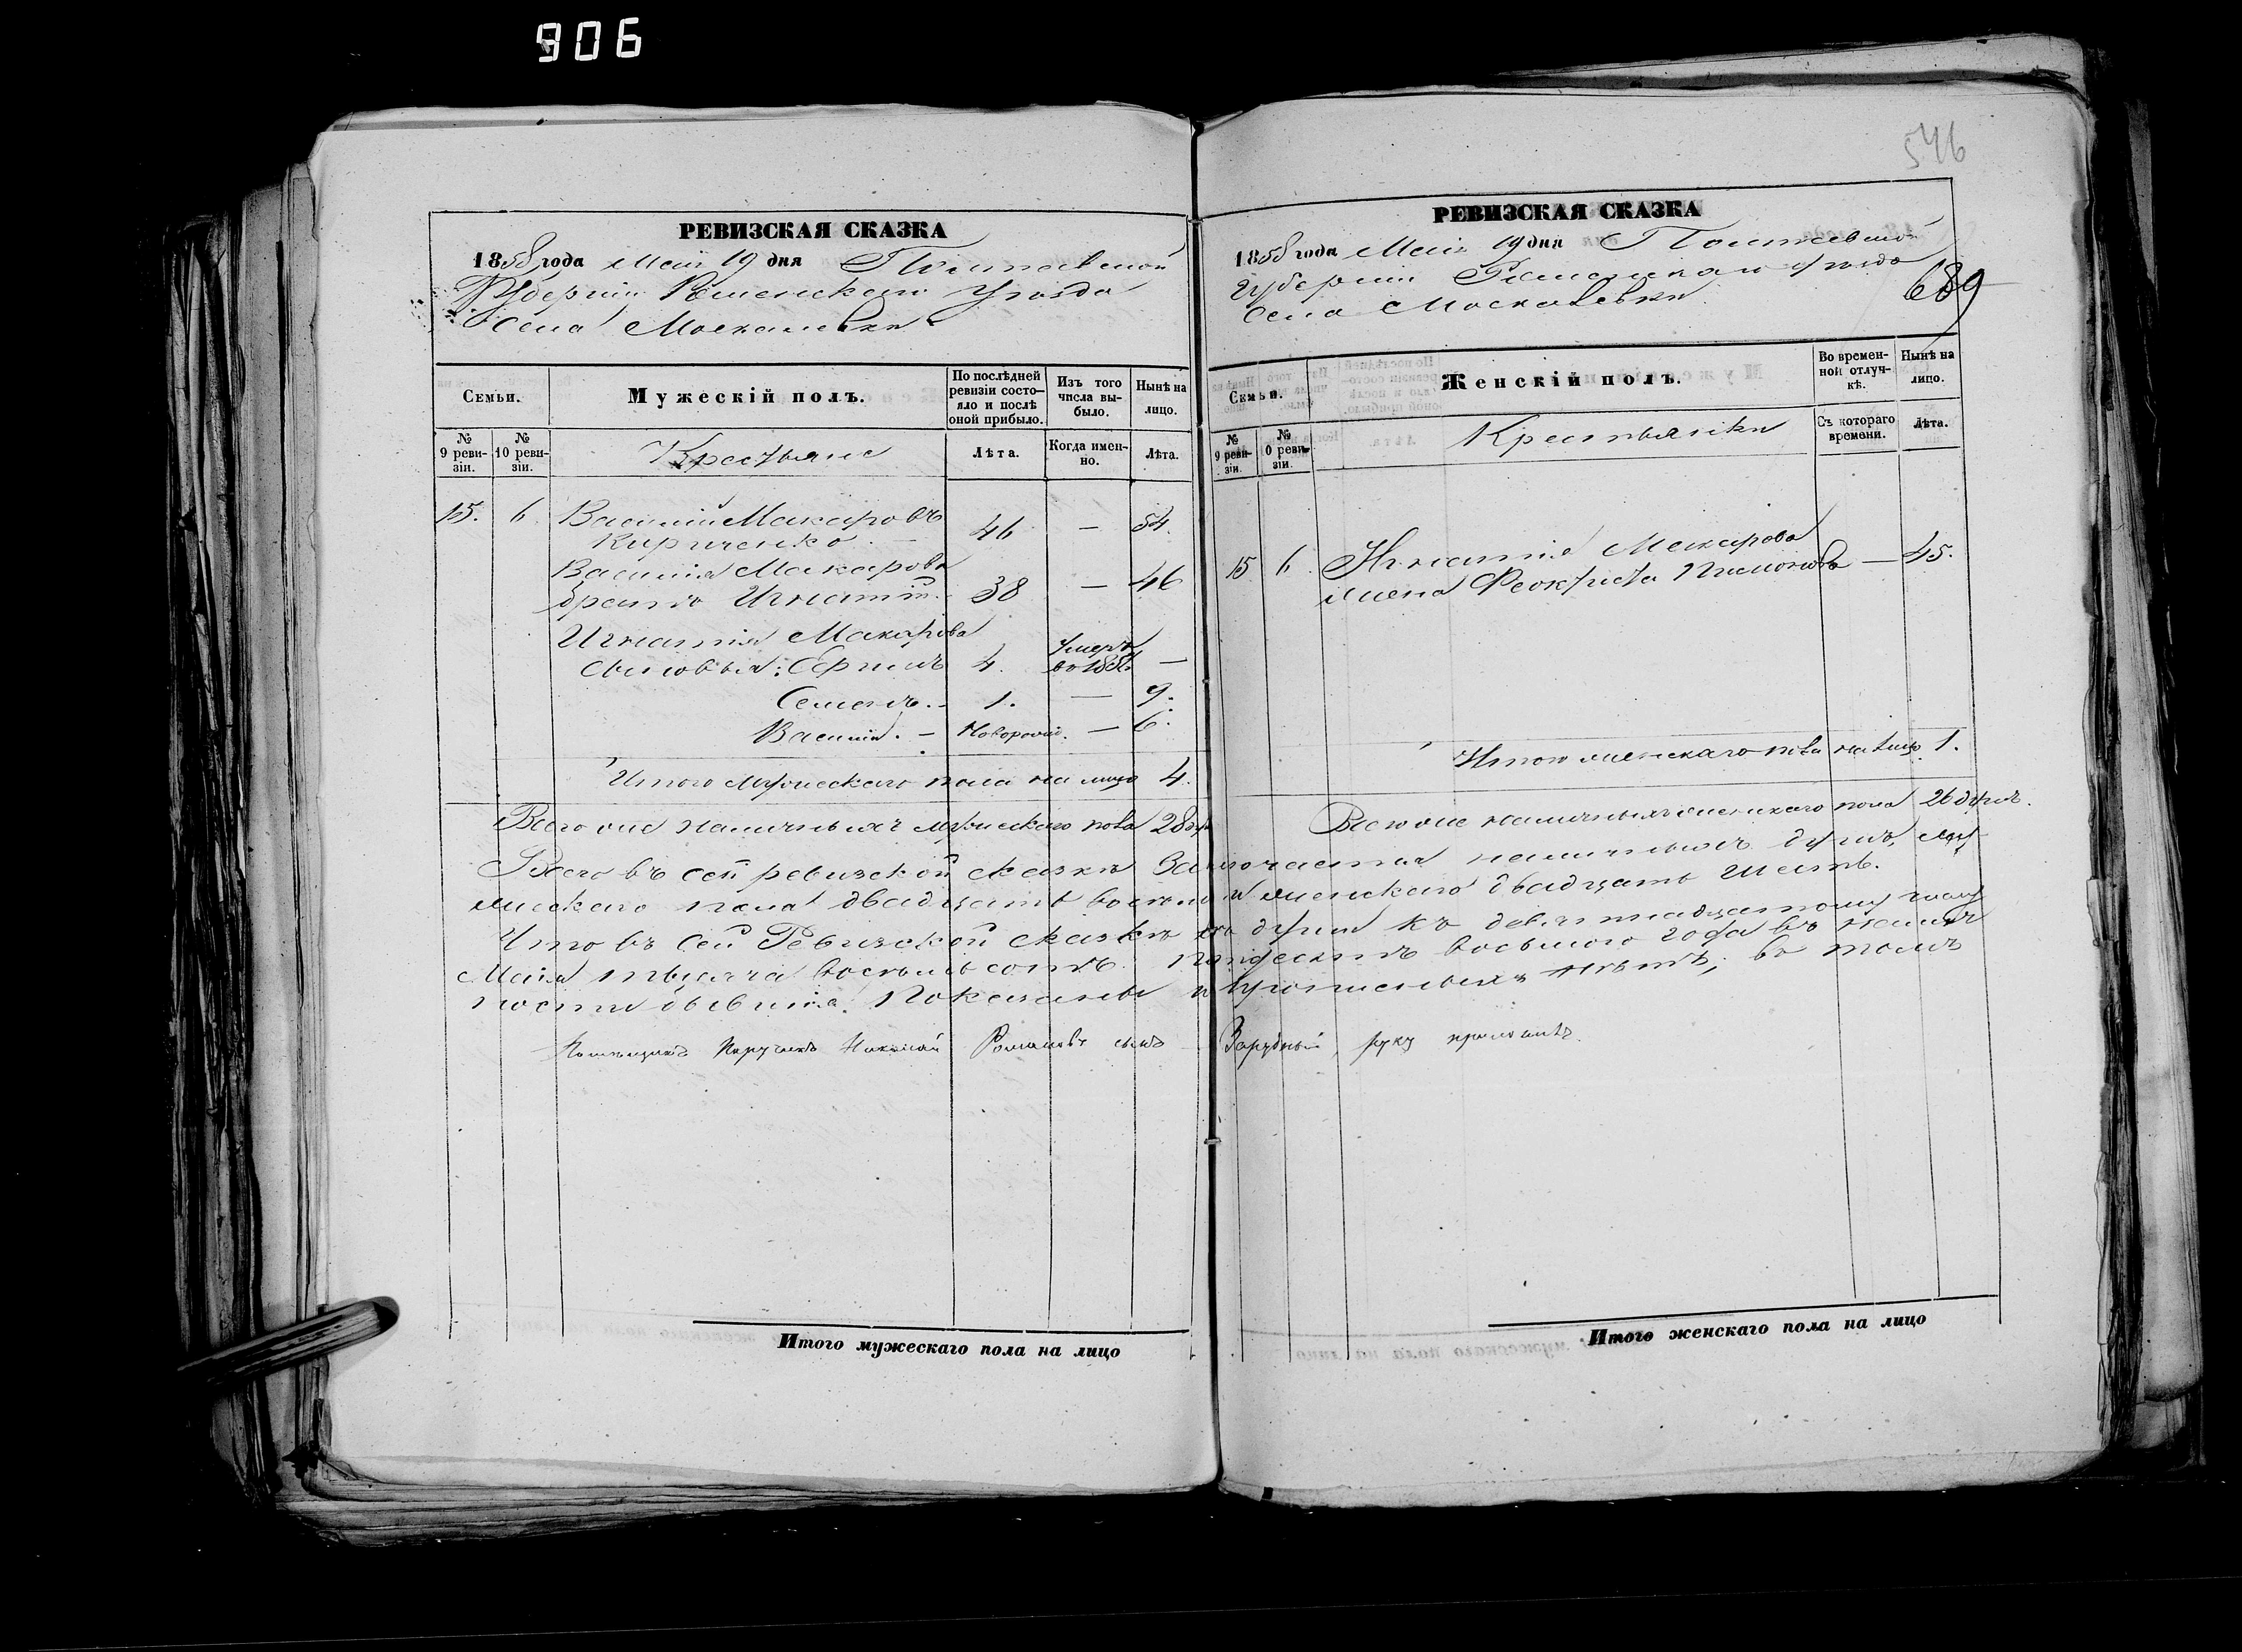 906
546
РЕВИЗСКАЯ СКАЗКА
1858 года Маія 19 дня Полтавской
Губерніи Роменскаго Уѣзда
Села Москалевки
Семьи.
Мужескій полъ.
По послѣдней ревизіи состояло и послѣ оной прибыло.
Изъ того числа выбыло.
Нынѣ на лицо.
№ 9 ревизіи.
№ 10 ревизіи.
Крестьяне
Лѣта.
Когда именно.
Лѣта.
15. 6. Василій Макаровъ
Кириченко. 46 — 54.
Василія Макарова
братъ Игнатій. 38 — 46
Игнатія Макарова
сыновья: 4. Умеръ въ —
Семенъ. 1. — 9.
Василій. — Новорожд. — 6.
Итого мужескаго пола на лицо 4.
РЕВИЗСКАЯ СКАЗКА
1858 года Маія 19 дня Полтавской
Губерніи Роменскаго Уѣзда
Села Москалевки
689
Семьи.
Женскій полъ.
Во временной отлучкѣ.
Нынѣ на лицо.
№ 9 ревизіи.
№ 0 ревизіи.
Крестьянки
Съ котораго времени.
Лѣта.
15 6. Игнатія Макарова
жена Феоктиста — 45.
Итого женскаго пола на лицо 1.
Всего же наличныхъ мужескаго пола 28 душ Всего же наличныхъ женскаго пола 26 душъ.
Всего въ сей ревизской сказкѣ Заключается наличныхъ душъ, му
жескаго пола двадцать восемь и женскаго двадцать шесть.
Что въ сей Ревизской сказкѣ всѣ души къ девятнадцатому числу
Маія тысяча восемьсотъ пятдесятъ восьмого года въ налич
ности бывшія. Показаны и нѣтъ; въ томъ
Помѣщикъ Поручикъ Николай Романовъ сынъ Зарудный, руку приложилъ.
Итого мужескаго пола на лицо
Итого женскаго пола на лицо